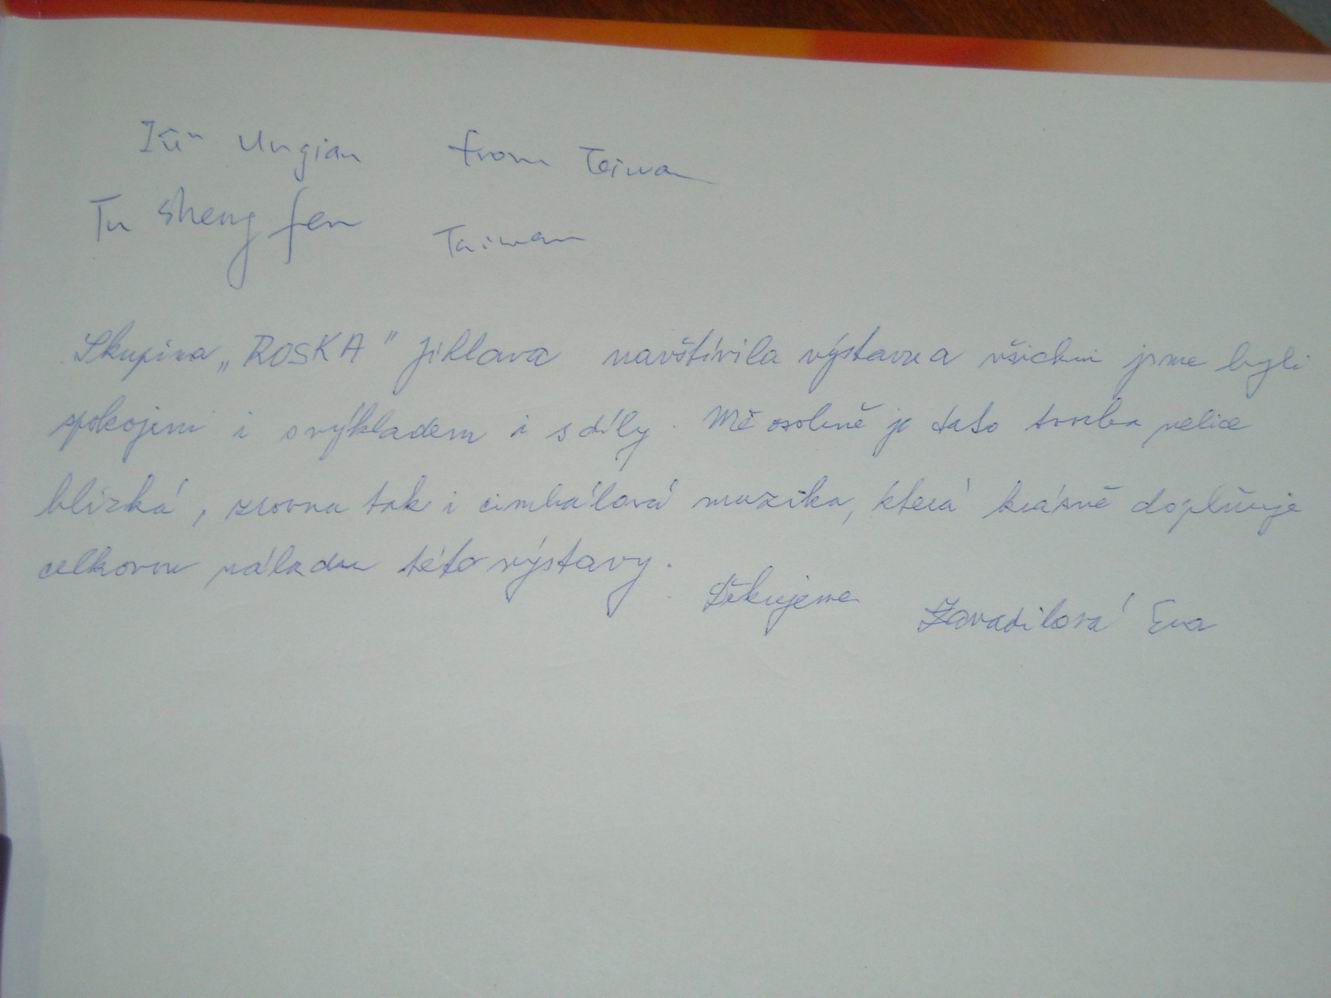 Ungian from Taiwan
Tu Sheng fen Taiwan
Skupina „ROSKA" Jihlava navštívila výstavu a všichni jsme byli
spokojeni i s výkladem i s díly. Mě osobně je tato tvorba velice
blízká, zrovna tak i cimbálová muzika, která krásně doplňuje
celkovou náladu této výstavy.
Děkujeme Zavadilová Eva